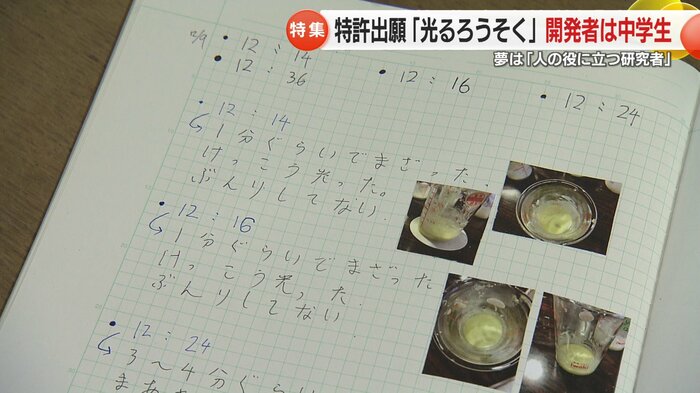 特集
特許出願「光るろうそく」開発者は中学生
夢は「人の役に立つ研究者」
12/9
• 12 : 14
• 12 : 16
• 12 : 24
• 12 : 36
• 12 : 14
1分ぐらいでまざった.
けっこう光った。
ぶんりしてない
• 12 : 16
1分ぐらいでまざった
けっこう光った.
ぶんりしてない
• 12 : 24
3〜4分ぐらい
Iwaki